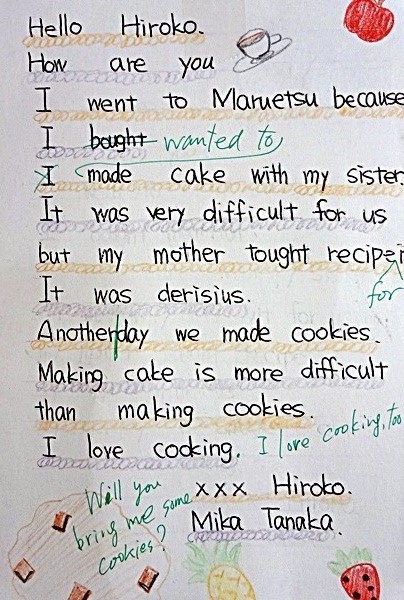 Hello Hiroko.
How are you
I went to Maruetsu because
I bought wanted to
I made cake with my sister
It was very difficult for us
but my mother tought recipe
for
It was derisius.
Anotherday we made cookies.
Making cake is more difficult
than making cookies.
I love cooking. I love cooking, too
xxx Hiroko.
Mika Tanaka.
Will you
bring me some
cookies?